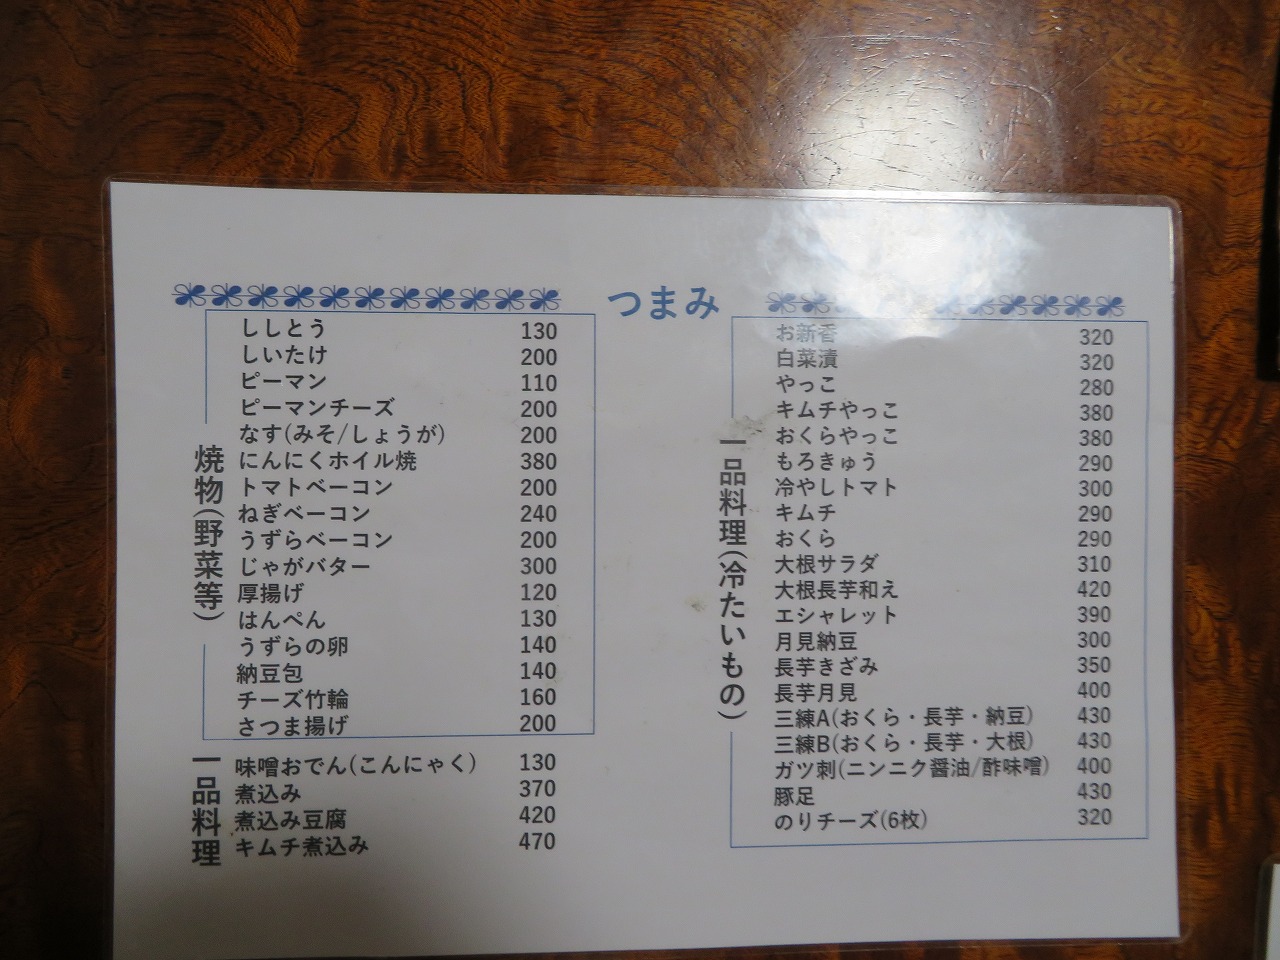 つまみ
焼物(野菜等)
ししとう 130
しいたけ 200
ピーマン 110
ピーマンチーズ 200
なす(みそ/しょうが) 200
にんにくホイル焼 380
トマトベーコン 200
ねぎベーコン 240
うずらベーコン 200
じゃがバター 300
厚揚げ 120
はんぺん 130
うずらの卵 140
納豆包 140
チーズ竹輪 160
さつま揚げ 200
一品料理
味噌おでん(こんにゃく) 130
煮込み 370
煮込み豆腐 420
キムチ煮込み 470
一品料理(冷たいもの)
お新香 320
白菜漬 320
やっこ 280
キムチやっこ 380
おくらやっこ 380
もろきゅう 290
冷やしトマト 300
キムチ 290
おくら 290
大根サラダ 310
大根長芋和え 420
エシャレット 390
月見納豆 300
長芋きざみ 350
長芋月見 400
三練A(おくら・長芋・納豆) 430
三練B(おくら・長芋・大根) 430
ガツ刺(ニンニク醤油/酢味噌) 400
豚足 430
のりチーズ(6枚) 320